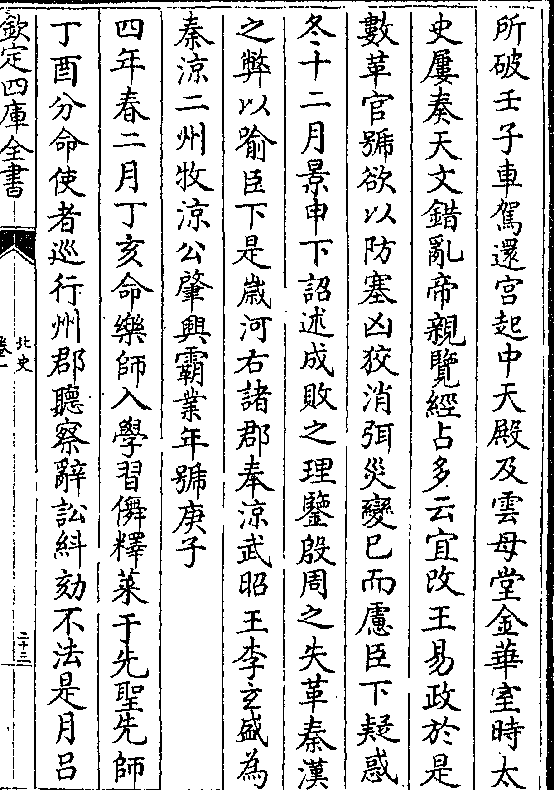 所破壬子車駕還宫起中天殿及雲母堂金華室時太
史屢奏天文錯亂帝親覽經占多云宜改王易政於是
數革官號欲以防塞凶狡消弭災變已而慮臣下疑惑
冬十二月景申下詔述成敗之理鑒殷周之失革秦漢
之弊以喻臣下是歲河右諸郡奉凉武昭王李玄盛為
秦凉二州牧凉公肇興霸業年號庚子
四年春二月丁亥命樂師入學習舞釋菜于先聖先師
丁酉分命使者巡行州郡聽察辭訟糾劾不法是月吕
欽定四庫全書
北史
卷一
二十三